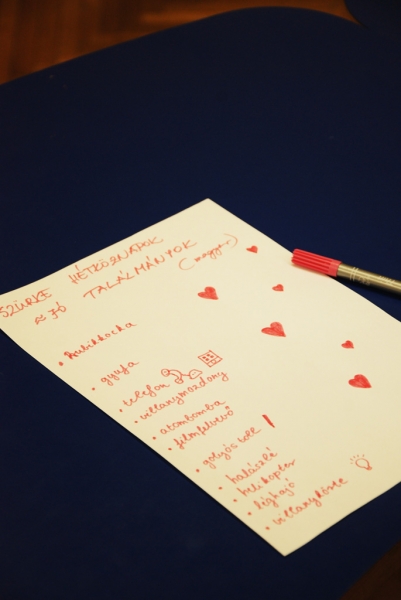 SZÜRKE HÉTKÖZNAPOK
A JÓ TALÁLMÁNYOK
(magyar)
• Rubikkocka
• gyufa
• telefon
• villanymozdony
• atombomba
• filmfelvevő
• golyós toll
• halászlé
• helikopter
• léghajó
• villanykörte